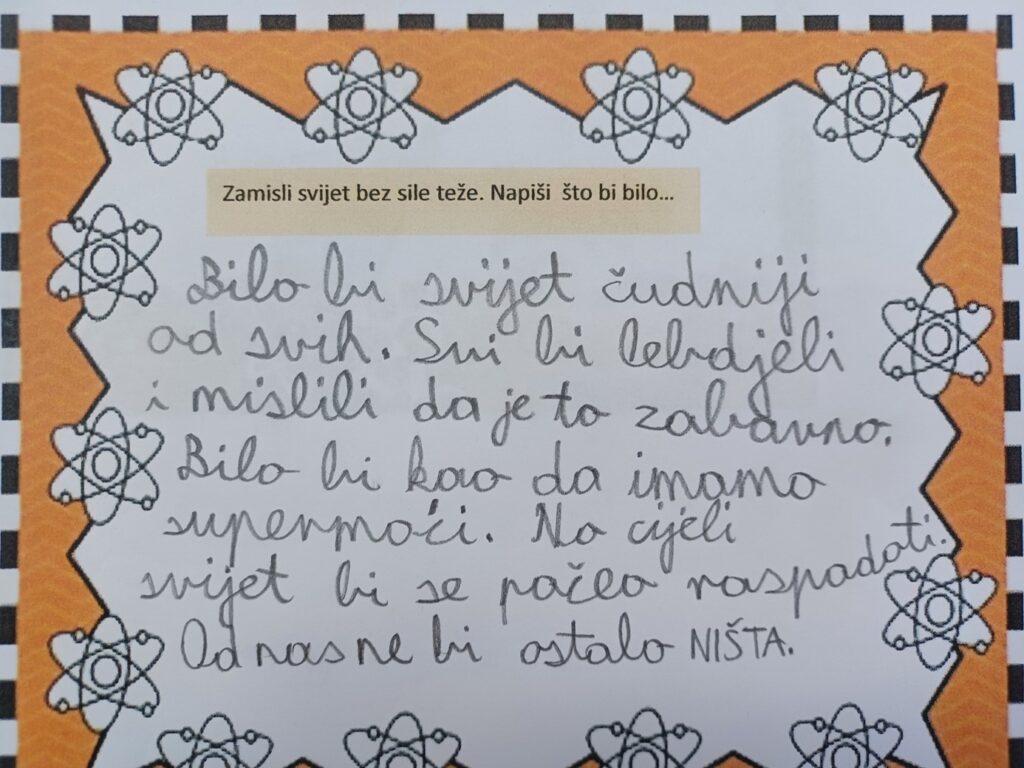 Zamisli svijet bez sile teže. Napiši što bi bilo...
Bilo bi svijet čudniji
od svih. Svi bi lebdjeli
i mislili da je to zabavno.
Bilo bi kao da imamo
supermoći. No cijeli
svijet bi se počeo raspadati.
Od nas ne bi ostalo NIŠTA.